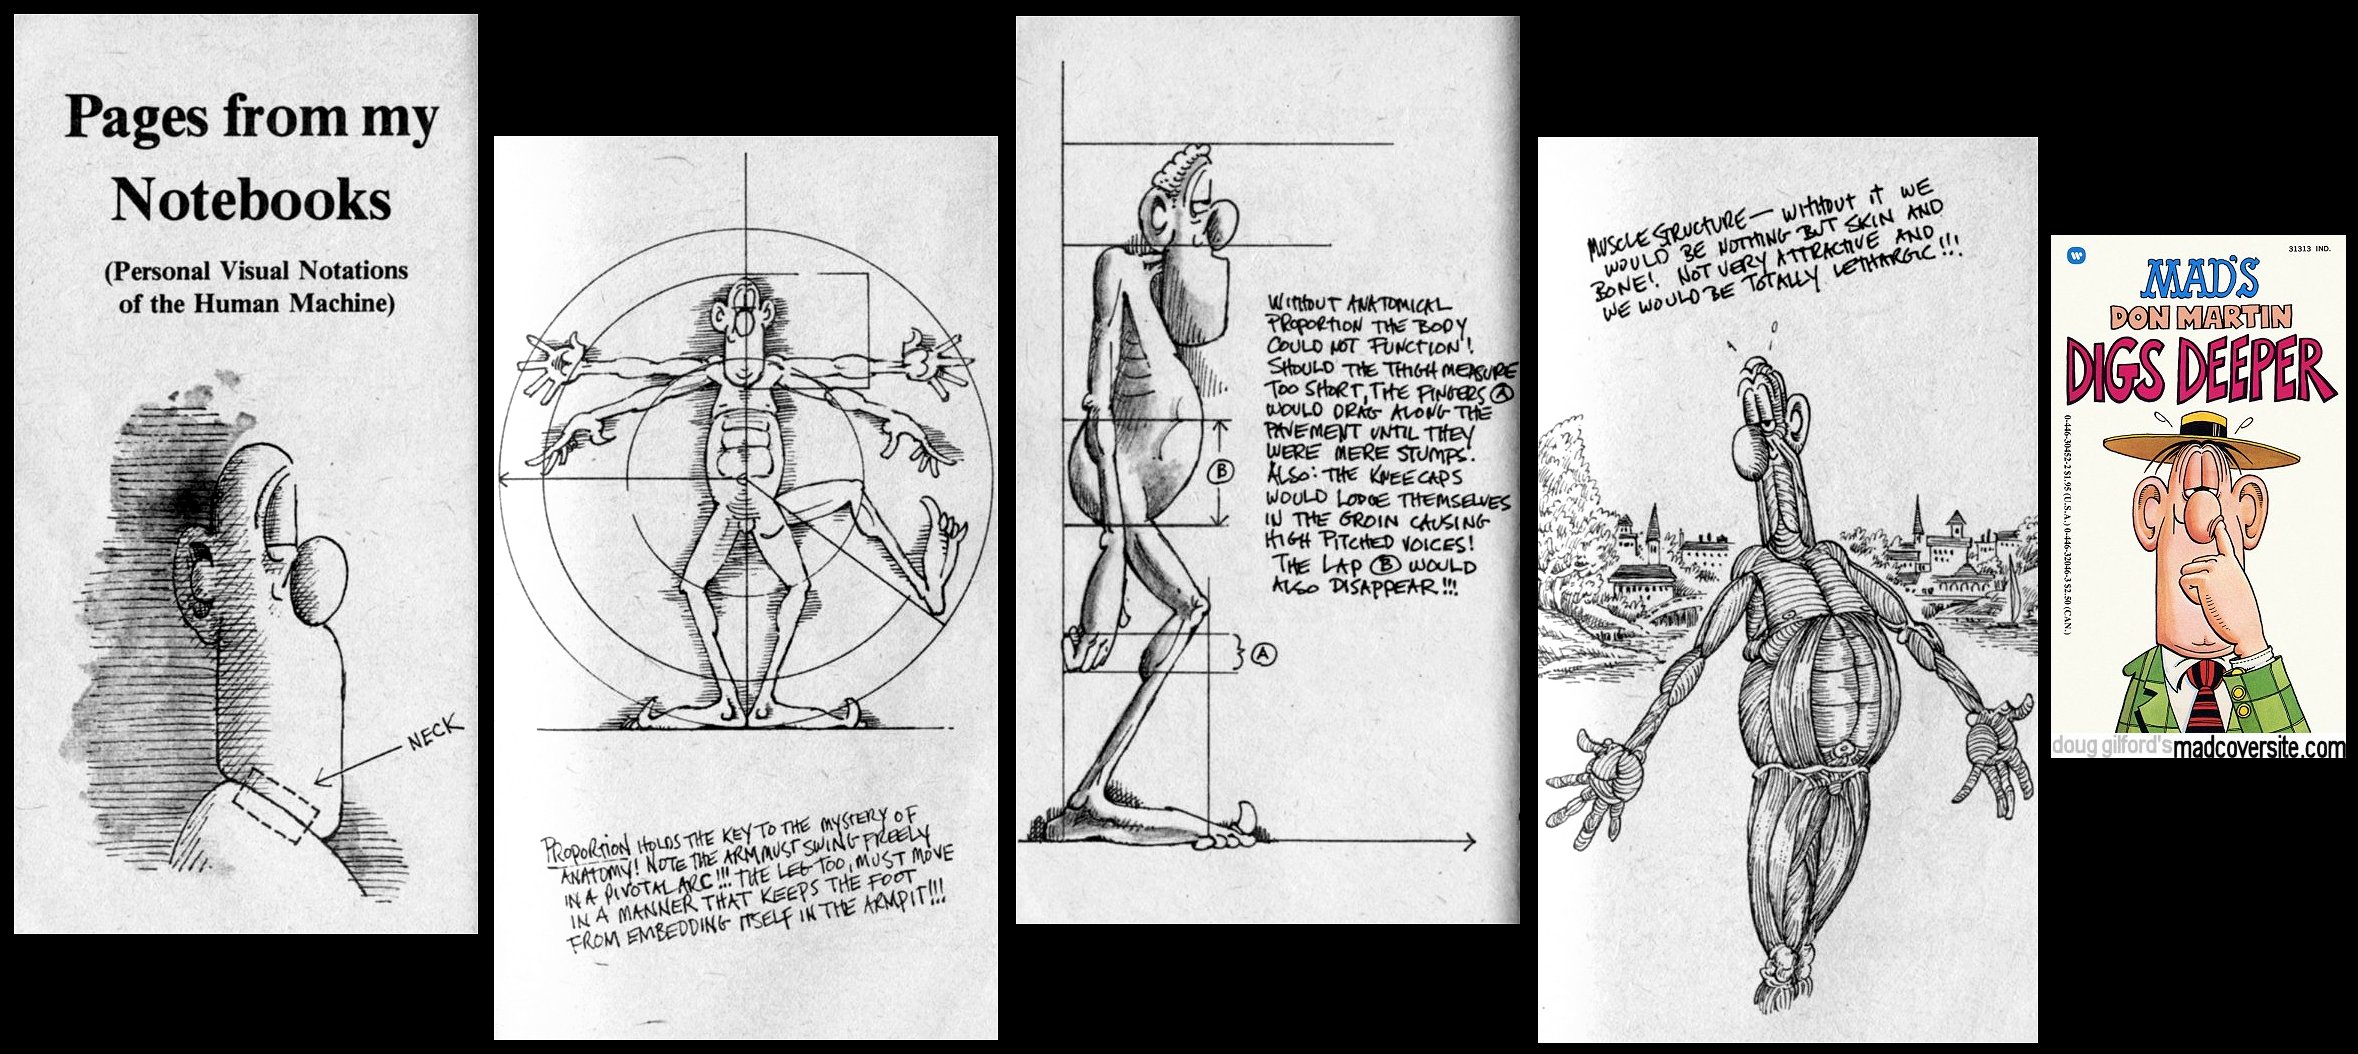 Pages from my
Notebooks
(Personal Visual Notations
of the Human Machine)
NECK
PROPORTION HOLDS THE KEY TO THE MYSTERY OF
ANATOMY! NOTE THE ARM MUST SWING FREELY
IN A PIVOTAL ARC!!! THE LEG TOO, MUST MOVE
IN A MANNER THAT KEEPS THE FOOT
FROM EMBEDDING ITSELF IN THE ARMPIT!!!
WITHOUT ANATOMICAL
PROPORTION THE BODY
COULD NOT FUNCTION!
SHOULD THE THIGH MEASURE
TOO SHORT, THE FINGERS A
WOULD DRAG ALONG THE
PAVEMENT UNTIL THEY
WERE MERE STUMPS.
ALSO: THE KNEECAPS
WOULD LODGE THEMSELVES
IN THE GROIN CAUSING
HIGH PITCHED VOICES!
THE LAP B WOULD
ALSO DISAPPEAR!!!
B
A
MUSCLE STRUCTURE — WITHOUT IT WE
WOULD BE NOTHING BUT SKIN AND
BONE! NOT VERY ATTRACTIVE AND
WE WOULD BE TOTALLY LETHARGIC!!!
W
31313 IND.
MAD'S
DON MARTIN
DIGS DEEPER
0-446-30452-2 $1.95 (U.S.A.) 0-446-32046-3 $2.50 (CAN.)
doug gilford's madcoversite.com